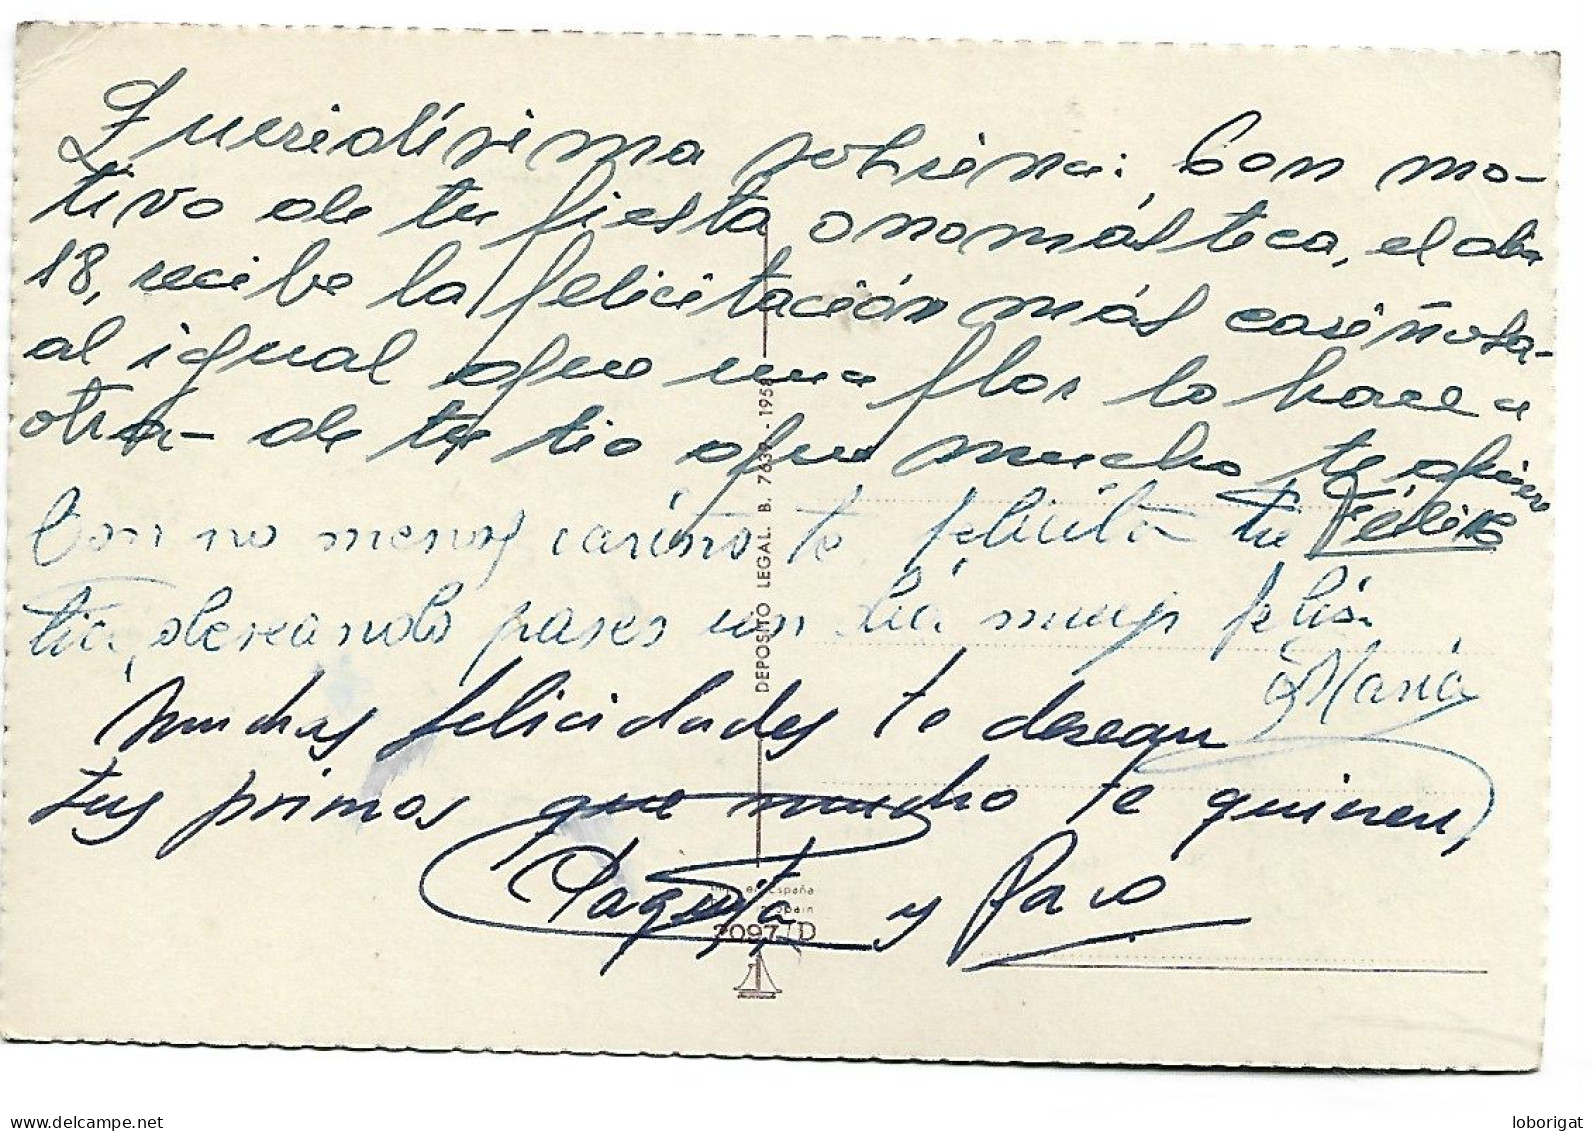 Queridísima sobrina: Con mo-
tivo de tu fiesta onomástica, el día
18, recibe la felicitación más cariñosa-
al igual que una flor lo hace a
otra- de tu tio que mucho te quiere
Félix
Con no menos cariño te felicita tu
tia, deseando pases un día muy feliz.
María
Muchas felicidades te desean
tus primos que mucho te quieren,
Paquita y Paco
DEPOSITO LEGAL. B. 7639 - 1958
España
Spain
2097/D
www.delcampe.net
loborigat